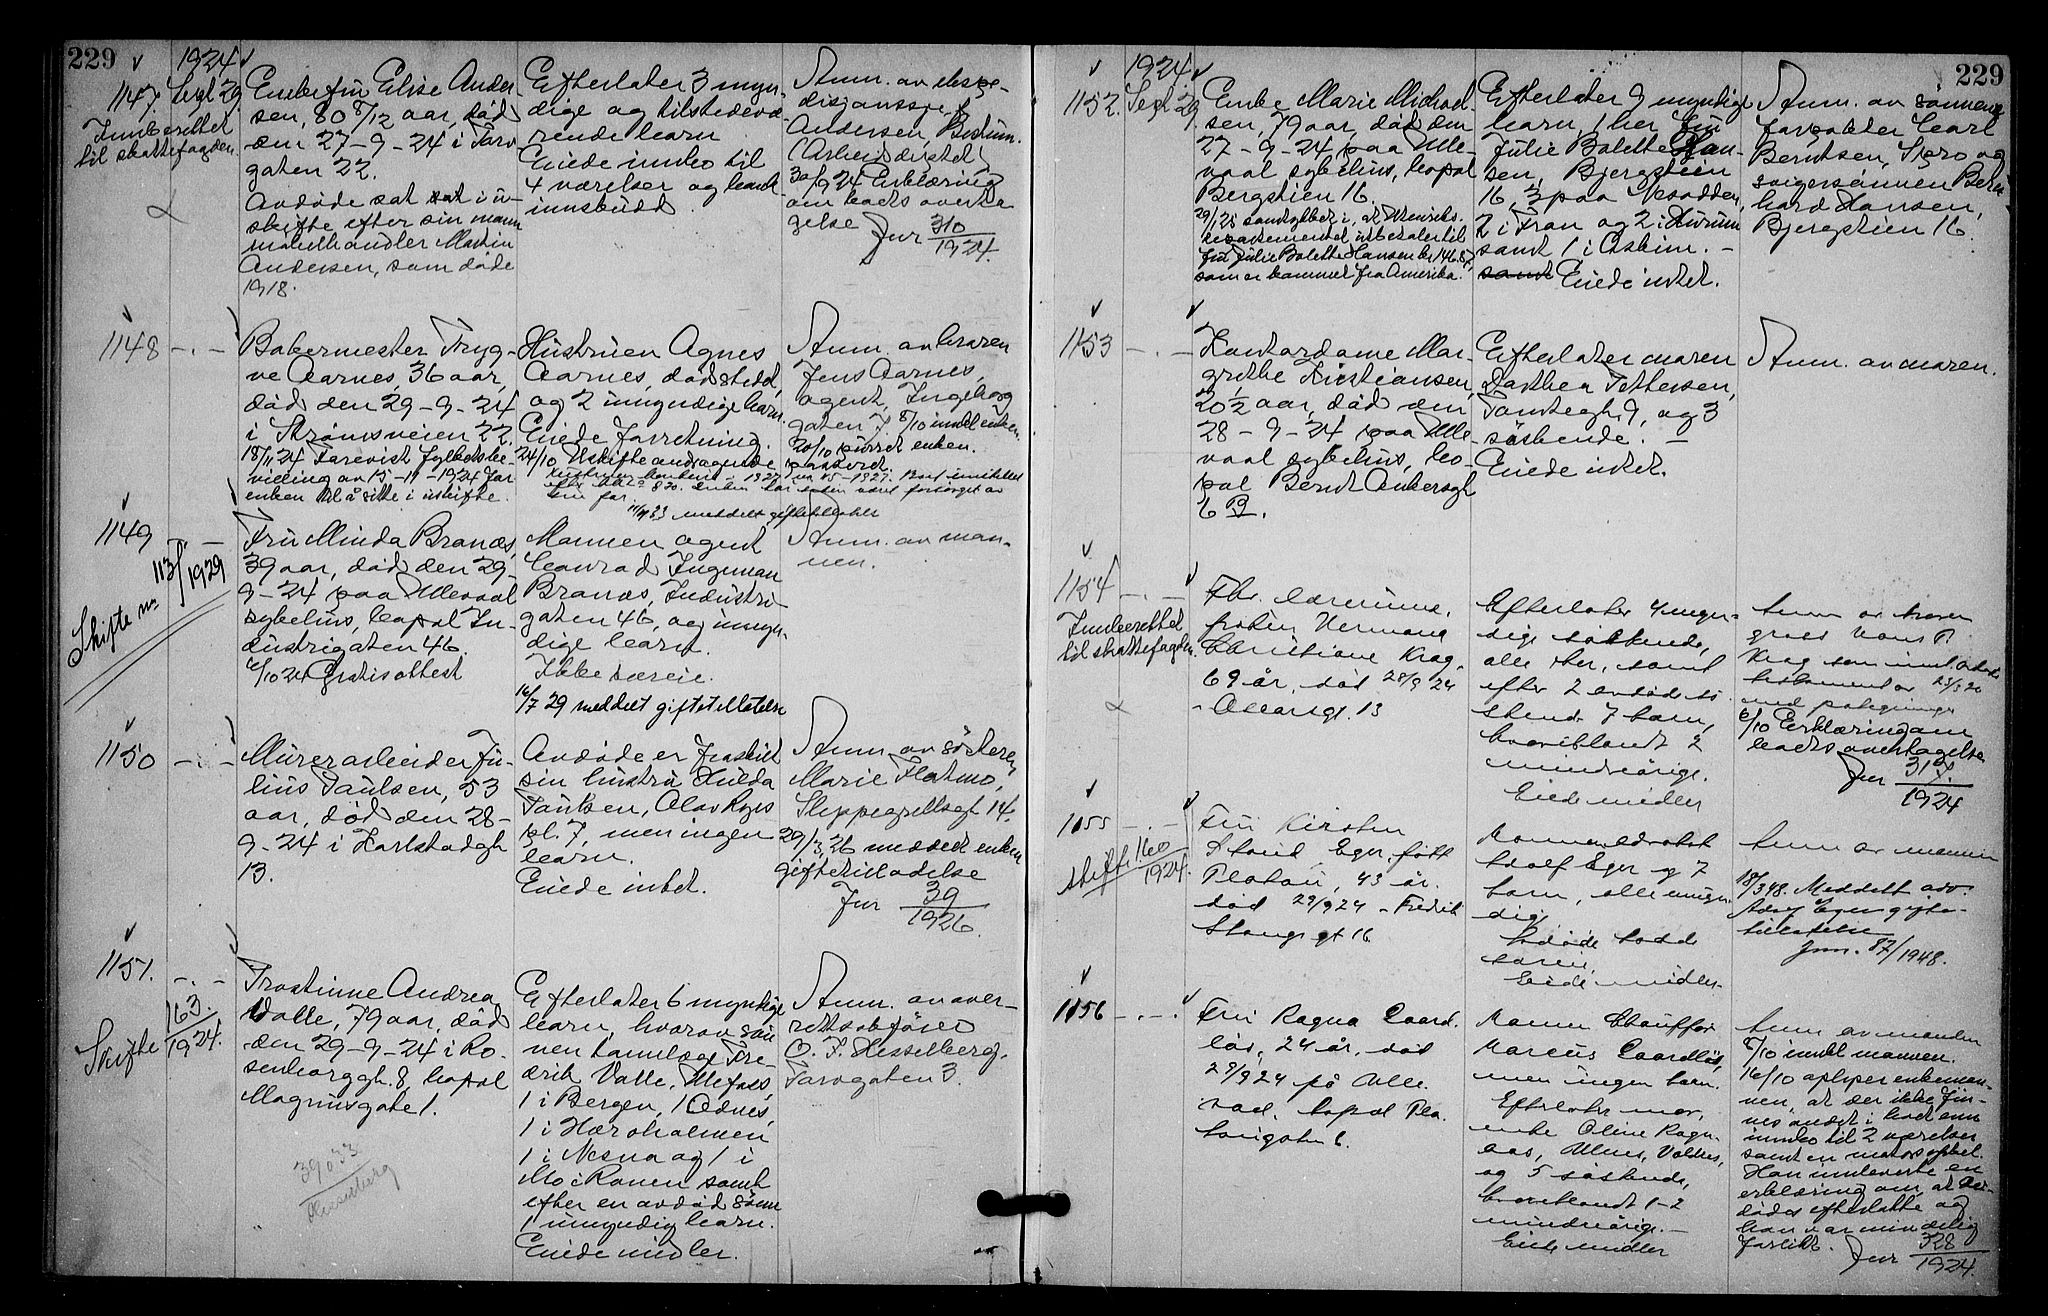 229
1924
1147 Sept 29
Indberettet
til skattefogden.
Enkefru Elise Ander-
sen, 80 8/12 aar, död
den 27-9-24 i Torv-
gaten 22.
Avdöde sat i u-
skifte efter sin mann
Martin
Andersen, som döde
1918.
Efterlater 3 myn-
dige og tilstedevæ-
rende barn
Eiede innbo til
4 værelser og bank-
innskudd.
Anm. av ekspe-
disjonssjef
Andersen,
(Arbeidsdirektol)
30/9 24 Erklæring
om boets overta-
gelse
Jur 310/1924.
1148 -.-
Bakermester Tryg-
ve Aarnes, 36 aar,
död den 29-9-24
i Strömsveien 22.
18/11 24 Forevist fylkets be-
villing av 15-11-1924 for
enken til å sitte i uskifte.
Hustruen Agnes
Aarnes, dödsstedet,
og 2 umyndige barn.
Eiede forretning.
24/10 Uskifteandragende
Anm. av broren
Jens Aarnes,
agent, Ingeborg
gaten 7. 8/10 innk. enken.
20/10 purret enken.
passert.
meddelt giftetillatelse
1149 -.-
Skifte nr. 113/1929
Fru Minda Branæs,
39 aar, död den 29-
9-24 paa Ullevaal
sykehus, bopæl In-
dustrigaten 46.
6/10 24 Gratisattest
Mannen agent
Conrad Ingeman
Branæs, Industri-
gaten 46, og umyn-
dige barn.
Ikke særeie.
16/7 29 meddelt giftetillatelse
Anm. av man-
nen.
1150 -.-
Murerarbeider Ju-
lius Paulsen, 53
aar, död den 28-
9-24 i Karlstadgt.
13.
Avdöde er fraskilt
sin hustru Hulda
Paulsen, Olav Ryes
pl. 7, men ingen
barn.
Eiede intet.
Anm. av sösteren
Marie Flatmo,
Steppegrellsgt 14.
29/3 26 meddelt enken
giftetilladelse
Jur 39/1926.
1151. -.-
Skifte 163./1924.
Prostinne Andrea
Valle, 79 aar, död
den 29-9-24 i Ro-
senborggt. 8, bopæl
Magnusgate 1.
39033
Hesselberg
Efterlater 6 myndige
barn, hvorav sön-
nen kand. Fre-
drik Valle, Ulefoss,
1 i Bergen, 1 Odnes,
1 i Hærøholmen
1 i Nesna og 1 i
Mo i Ranen samt
efter en avdöd sönn
1 umyndig barn.
Eiede midler.
Anm. av over-
rettssakförer
O. F. Hesselberg,
Torvgaten 3.
229
1924
1152. Sept 29.
Enke Marie Michael-
sen, 79 aar, död den
27-9-24 paa Ulle-
vaal sykehus, bopæl
Bergstien 16.
29/1 25 samtykket i, at Utenriks-
departementet utbetaler til
fru Julie Bolette Hansen kr 146.87,
som er kommet fra Amerika.
Efterlater 9 myndige
barn, 1 her, fru
Julie Bolette Han-
sen, Bjergstien
16, 3 paa Nesodden,
2 i Fron og 2 i Hurum
samt 1 i Askim. -
samt Eiede intet.
Anm. av sönnen
forpakter Carl
Berntsen, og
svigersönnen Bern-
hard Hansen,
Bjergstien 16.
1153 -.-
Kontordame Mar-
grethe Kristiansen,
20 1/2 aar, död den
28-9-24 paa Ulle-
vaal sykehus, bo-
pæl Bernt Ankersgt
6 B.
Efterlater moren
Dorthea Pettersen,
Tomtegt. 9, og 3
söskende. -
Eiede intet.
Anm. av moren.
1154 -.-
Indberettet
til skattefogden.
Fhv. lærerinne,
fröken Hermana
Christiane Krag,
69 år, död 28/9 24
- Oscarsgt. 13
Efterlater 4 myn-
dige söskende,
alle her, samt
efter 2 avdöde sö-
skende 7 barn,
hvoriblandt 2
mindreårige.
Eiede midler
Anm. av broren
Hans P.
Krag som innl.
testament av 23/3 20
med påtegninger
6/10 Erklæring om
boets overtagelse
Jur 317./1924
1155 -.-
Skifte 160/1924.
Fru Kirsten
Eger, født
Platou, 43 år.
död 29/9 24 - Fredrik
Stangs gt 16
Mannen advokat
Adolf Eger og 7
barn, alle umyn-
dige
Avdöde hadde
særeie.
Eiede midler.
Anm. av mannen
18/3 48. Meddelt adv.
Adolf Eger gifte-
tillatelse
Jnr. 87/1948.
1156 -.-.
Fru Ragna Coard-
lös, 24 år, död
29/9 24 på Ulle-
vaal. bopæl Pla-
tousgaten 6.
Mannen Chauffør
Marcus Coardlös,
men ingen barn.
Efterlater mor,
enke Oline Rogn-
aas, Ulnes, Valdres,
og 5 söskende,
hvoriblandt 1-2
mindreårige. -
Eiede midler
Anm. av manden
8/10 innk. mannen.
16/10 oplyser enkeman-
nen, at der ikke fin-
nes andet i boet enn
innbo til 2 værelser
samt en motorsykkel.
Han innleverte en
erklæring om, at av-
dödes efterlatte og
han var mindelig
forlikt.
Jur 328/1924.